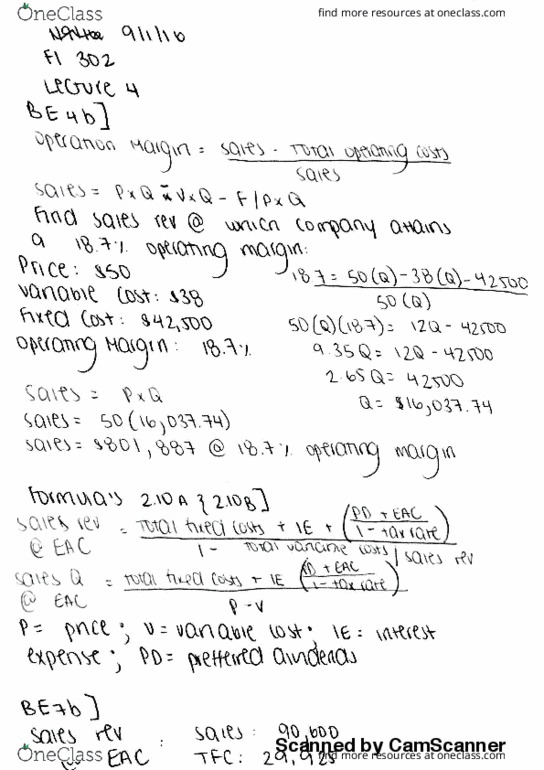 OneClass
find more resources at oneclass.com
9/1/16
FI 302
Lecture 4
BE4b]
Operation Margin = Sales - Total operating costs
Sales
Sales = P x Q - V x Q - F / P x Q
Find sales rev @ which company attains
a 18.7% operating margin:
Price: $50
Variable Cost: $38
Fixed Cost: $42,500
Operating Margin: 18.7%
.187 = 50(Q) - 38(Q) - 42500
50(Q)
50(Q)(.187) = 12Q - 42500
9.35Q = 12Q - 42500
2.65Q = 42500
Q = $16,037.74
Sales = P x Q
Sales = 50(16,037.74)
Sales = $801,887 @ 18.7% operating margin
Formula's 2.10A & 2.10B]
Sales rev @ EAC = Total fixed costs + IE + (PD + EAC / 1 - tax rate)
1 - Total variable costs / sales rev
Sales Q @ EAC = Total fixed costs + IE (PD + EAC / 1 - tax rate)
P - V
P = price; V = variable cost; IE = interest
expense; PD = preffered dividends
BE7b]
Sales rev : Sales: 90,600
EAC TFC: 29,925
Scanned by CamScanner
OneClass
find more resources at oneclass.com